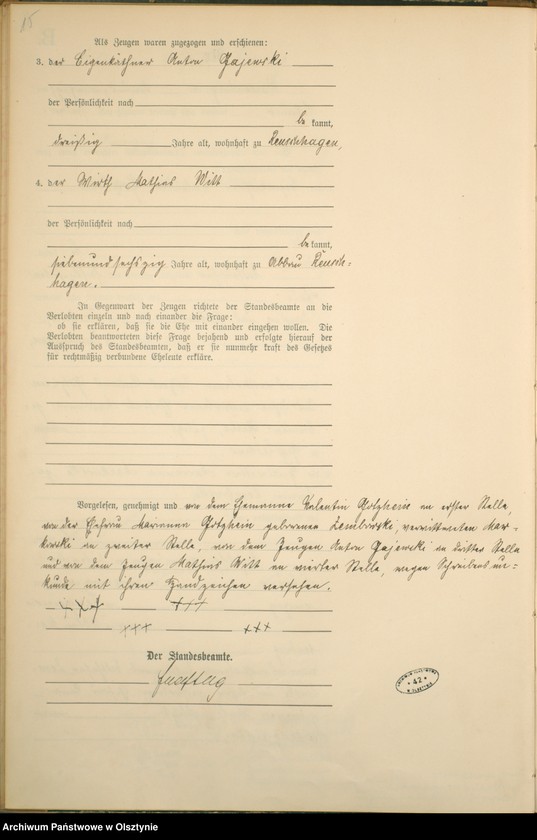 15
Als Zeugen waren zugezogen und erschienen:
3. der Eigenkäthner Anton Gajewski
der Persönlichkeit nach
be kannt,
dreißig Jahre alt, wohnhaft zu Reuschhagen,
4. der Wirth Mathias Witt
der Persönlichkeit nach
be kannt,
siebenundsechszig Jahre alt, wohnhaft zu Abbau Reusch-
hagen.
In Gegenwart der Zeugen richtete der Standesbeamte an die
Verlobten einzeln und nach einander die Frage:
ob sie erklären, daß sie die Ehe mit einander eingehen wollen. Die
Verlobten beantworteten diese Frage bejahend und erfolgte hierauf der
Ausspruch des Standesbeamten, daß er sie nunmehr kraft des Gesetzes
für rechtmäßig verbundene Eheleute erkläre.
Vorgelesen, genehmigt und von dem Ehemanne Valentin Gotzhein an erster Stelle,
von der Ehefrau Marianna Gotzhein geborenen verwittweten Mar-
kewski an zweiter Stelle, von dem Zeugen Anton Gajewski an dritter Stelle
und von dem Zeugen Mathias Witt an vierter Stelle, wegen Schreibensun-
kunde mit ihren Handzeichen versehen.
+++ +++
+++ +++
Der Standesbeamte.
42
Archiwum Państwowe w Olsztynie